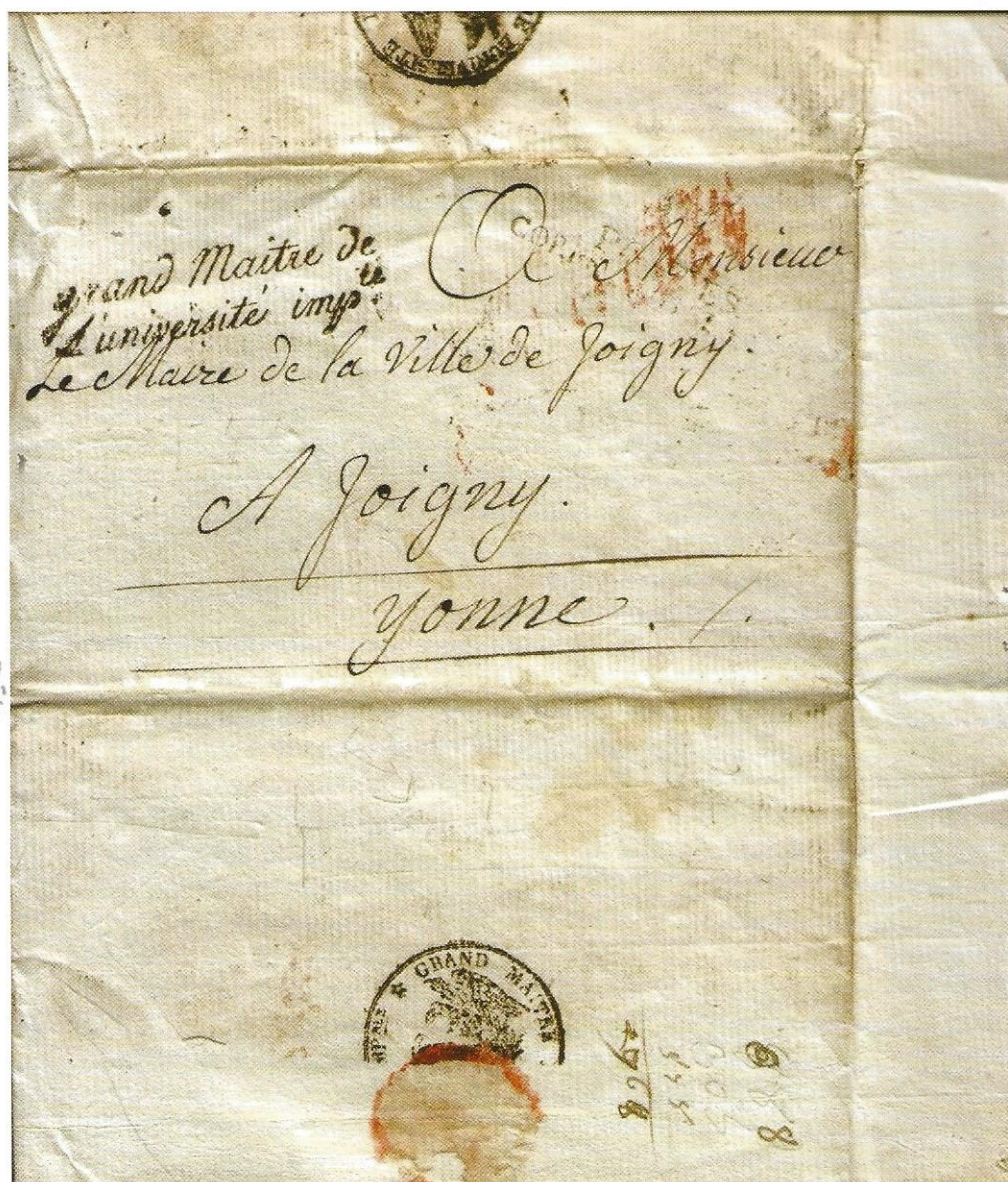 grand Maitre de
l'université imp.le
A Monsieur
Le Maire de la Ville de Joigny.
A Joigny.
Yonne.
GRAND MAITRE